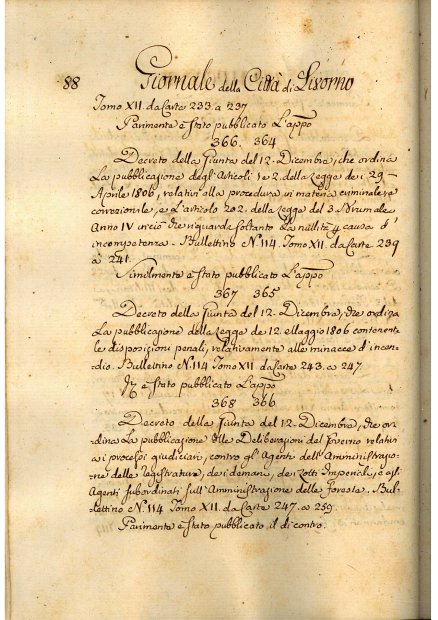 88 Giornale della Città di Livorno
Tomo XII. da Carte 233. a 237
Parimente è stato pubblicato L'appo
366. 364
Decreto della Giunta del 12. Dicembre, che ordina
La pubblicazione degl'Articoli 1 e 2. della Legge de i 29
Aprile 1806, relativi alla procedura in materia criminale, e
correzionale, e L'articolo 202. della Legge del 3. Brumale
Anno IV in ciò che riguarda soltanto La nullità p causa d'
incompetenza. Bullettino N. 114. Tomo XII. da Carte 239
a 241.
Similmente è stato pubblicato L'appo
367 365
Decreto della Giunta del 12. Dicembre, che ordina
La pubblicazione della Legge de 12. Maggio 1806 contenente
le disposizioni penali, relativamente alle minacce d'incen-
dio. Bullettino N. 114 Tomo XII da Carte 243. a 247.
è stato pubblicato L'appo
368 366
Decreto della Giunta del 12. Dicembre, che or-
dina La pubblicazione delle Deliberazioni del Governo relativ
a i processi giudiciari, contro gl'Agenti dell'Amministrazio-
ne delle Registrature, de i demani, de i Lotti Imperiali, e agli
Agenti subordinati sull'Amministrazione delle Foreste. Bul-
lettino N. 114 Tomo XII. da Carte 247. a 259
Parimente è stato pubblicato il di contro.